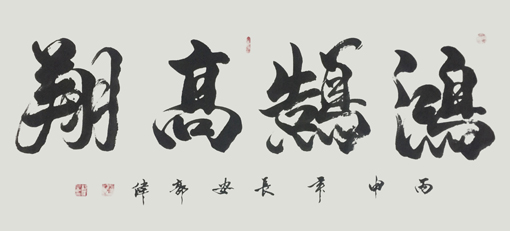 鴻鵠高翔
丙申年長安郭偉